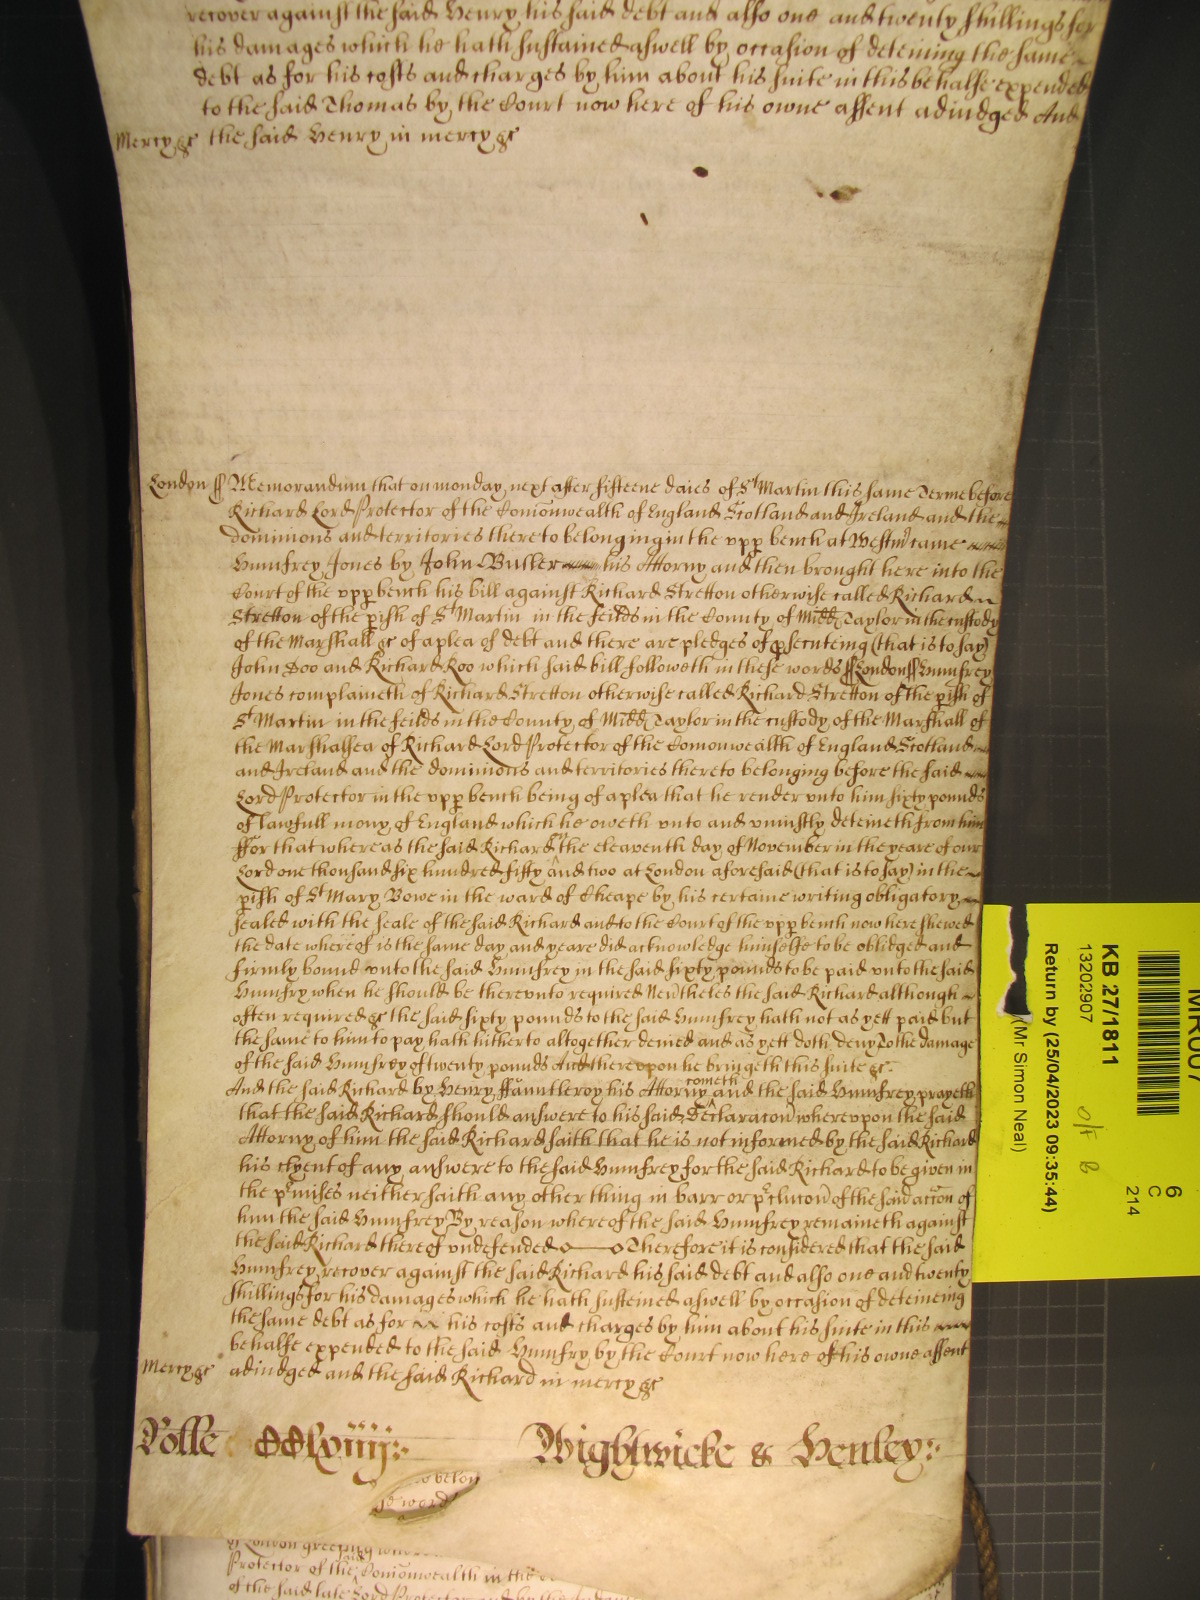 recover against the said Henry his said debt and also one and twenty shillings for
his damages which he hath sustained aswell by occasion of deteining the same
debt as for his costs and charges by him about his suite in this behalfe expended
to the said Thomas by the Court now here of his owne assent adiudged And
Mercy &c the said Henry in mercy &c
London ss Memorandum that on monday next after fifteene daies of St Martin this same Terme before
Richard Lord Protector of the Comonwealth of England Scotland and Ireland and the
dominions and territories thereto belonging in the upp bench at Westmr came
Humfrey Jones by John Buller his Attorny and then brought here into the
Court of the upp bench his bill against Richard Stretton otherwise called Richard
Stretton of the pish of St Martin in the feilds in the County of Midd Taylor in the custody
of the Marshall &c of a plea of debt and there are pledges of psecuteing (that is to say)
John Doo and Richard Roo which said bill followeth in these words ss London ss Humfrey
Jones complaineth of Richard Stretton otherwise called Richard Stretton of the pish of
St Martin in the feilds in the County of Midd Taylor in the custody of the Marshall of
the Marshalsea of Richard Lord Protector of the Comonwealth of England Scotland
and Ireland and the dominions and territories thereto belonging before the said
Lord Protector in the upp bench being of a plea that he render unto him sixty pounds
of lawfull mony of England which he oweth unto and uniustly deteineth from him
ffor that whereas the said Richard the eleaventh day of November in the yeare of our
Lord one thousand six hundred fifty and two at London aforesaid (that is to say) in the
pish of St Mary Bowe in the ward of Cheape by his certaine writing obligatory
sealed with the seale of the said Richard and to the Court of the upp bench now here shewed
the date whereof is the same day and yeare did acknowledge himselfe to be oblidged and
firmly bound unto the said Humfrey in the said sixty pounds to be paid unto the said
Humfry when he should be thereunto required Nevtheles the said Richard although
often required &c the said sixty pounds to the said Humfrey hath not as yett paid but
the same to him to pay hath hitherto altogether denied and as yett doth deny To the damage
of the said Humfrey of twenty pounds And thereupon he bringeth this suite &c
And the said Richard by Henry ffauntleroy his Attorny cometh and the said Humfrey prayeth
that the said Richard should answere to his said Declaracon whereupon the said
Attorny of him the said Richard saith that he is not informed by the said Richard
his clyent of any answere to the said Humfrey for the said Richard to be given in
the pmises neither saith any other thing in barr or pclucon of the said accon of
him the said Humfrey By reason whereof the said Humfrey remaineth against
the said Richard thereof undefended Therefore it is considered that the said
Humfrey recover against the said Richard his said debt and also one and twenty
shillings for his damages which he hath susteined aswell by occasion of deteineing
the same debt as for his costs and charges by him about his suite in this
behalfe expended to the said Humfry by the Court now here of his owne assent
Mercy &c adiudged and the said Richard in mercy &c
Rolle CClxiiij Wightwicke & Henley
of London greeting
Protector of the Comonwealth in the
of the said late Lord Protector and by the
KB 27/1811
13202907
Return by (25/04/2023 09:35:44)
(Mr Simon Neal)
6
C
214